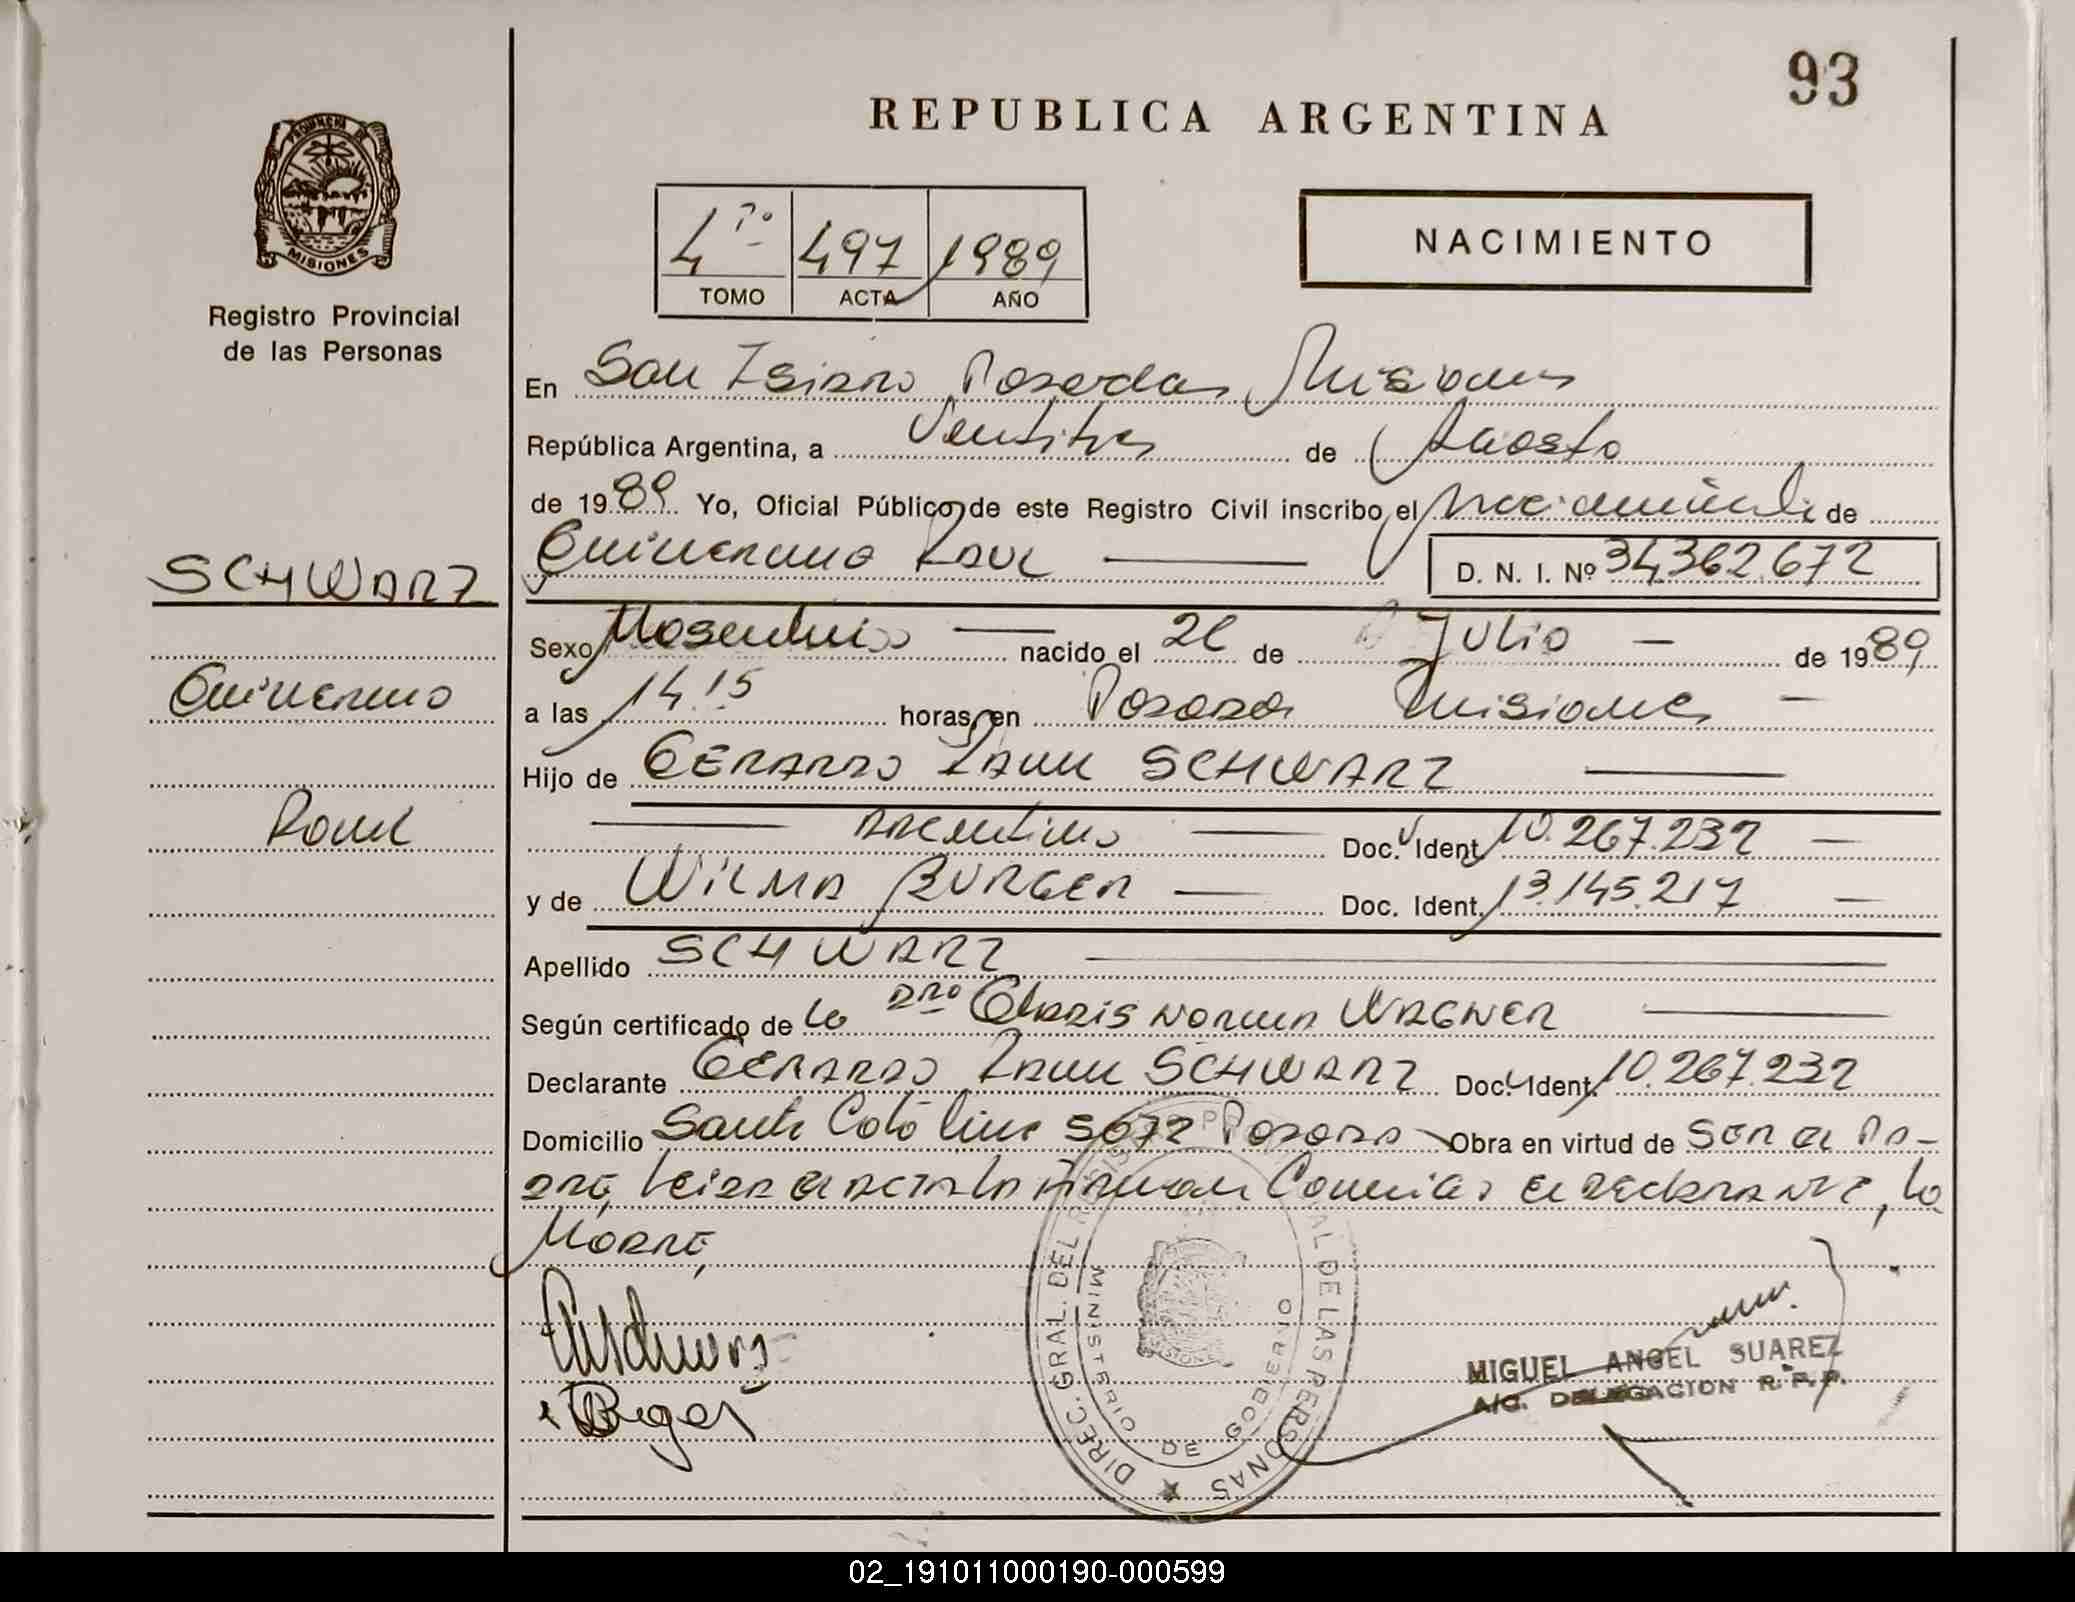 93
REPUBLICA ARGENTINA
PROVINCIA DE
MISIONES
Registro Provincial
de las Personas
4to 497 1989
TOMO ACTA AÑO
NACIMIENTO
En San Isidro Posadas Misiones
República Argentina, a Ventitres de Agosto
de 1989 Yo, Oficial Público de este Registro Civil inscribo el nacimiento de
Guillermo Raul D. N. I. Nº 34.362.672
SCHWARZ
Guillermo
Raul
Sexo Masculino nacido el 26 de Julio de 1989
a las 14.15 horas, en Posadas Misiones
Hijo de GERARDO RAUL SCHWARZ
Argentino Doc. Ident. 10.267.232
y de WILMA BURGER Doc. Ident. 13.145.217
Apellido SCHWARZ
Según certificado de la Dra Gladis Norma WAGNER
Declarante GERARDO RAUL SCHWARZ Doc. Ident. 10.267.232
Domicilio Santa Catalina 5672 Posadas Obra en virtud de Ser el Pa-
dre, leida el acta la firman Conmigo el declarante, la
Madre,
DIREC. GRAL. DEL REGISTRO PROVINCIAL DE LAS PERSONAS
MINISTERIO DE GOBIERNO
MIGUEL ANGEL SUAREZ
A/C. DELEGACION R. P. P.
02_191011000190-000599